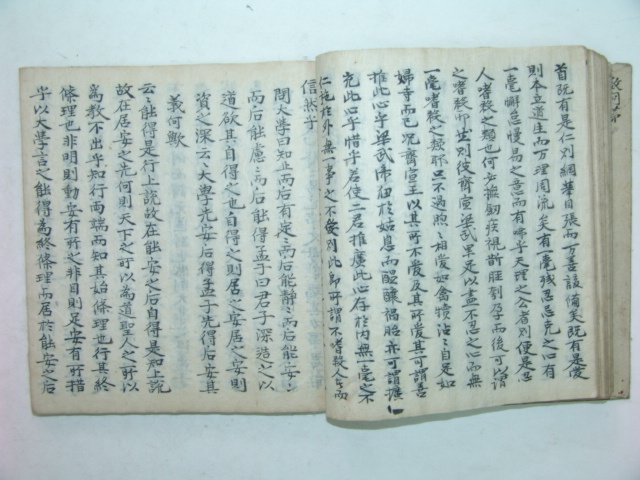 首既有是仁則綱華目張而万善該備矣既有是愛
則本立道生而万理周流矣有一毫殘忍忌克之心有
一毫懈怠慢易之意而有咈乎天理之公者則便是忍
人嗜殺之類也何必撫劒疾視斮脛刳孕而後可謂
之嗜殺耶笠別彼齊宣梁武卒是以盖不忍之心而無
一毫嗜殺之類耶只不過煦〻相愛如禽犢沾〻自足如
婦寺而已况齊宣王以其所不愛及其所愛其可謂善
推此心乎梁武帝狃於姑息而醞釀禍胎亦可謂遮
充此心乎惜乎若使二君推廣此心存於内無一毫之不
仁施於外無一事之不愛則此即所謂不嗜殺人者而
信然乎
問大學曰知止而后有定〻而后能静〻而后能安〻
而后能慮〻而后能得孟子曰君子深造之以
道欲其自得之也自得之則居之安居之安則
資之深云〻大學先安后得孟子先得后安其
義何歟
云〻能得是行上說故在能安之后自得是知上說
故在居安之先何則天下之所以為道聖人之所以
為教不出乎知行兩端而知其始條理也行其終
條理也非明則動安有所之非目則足安有所措
乎以大學言之能得為終條理而居於能安之后